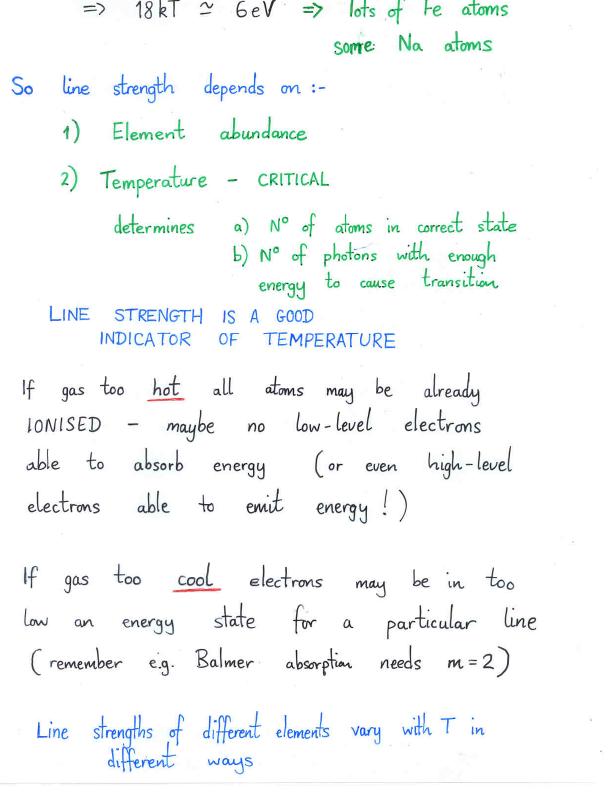 => 18kT ≃ 6eV => lots of Fe atoms
some Na atoms
So line strength depends on :-
1) Element abundance
2) Temperature - CRITICAL
determines a) Nº of atoms in correct state
b) Nº of photons with enough
energy to cause transition
LINE STRENGTH IS A GOOD
INDICATOR OF TEMPERATURE
If gas too hot all atoms may be already
IONISED - maybe no low-level electrons
able to absorb energy (or even high-level
electrons able to emit energy!)
If gas too cool electrons may be in too
low an energy state for a particular line
(remember e.g. Balmer absorption needs m=2)
Line strengths of different elements vary with T in
different ways